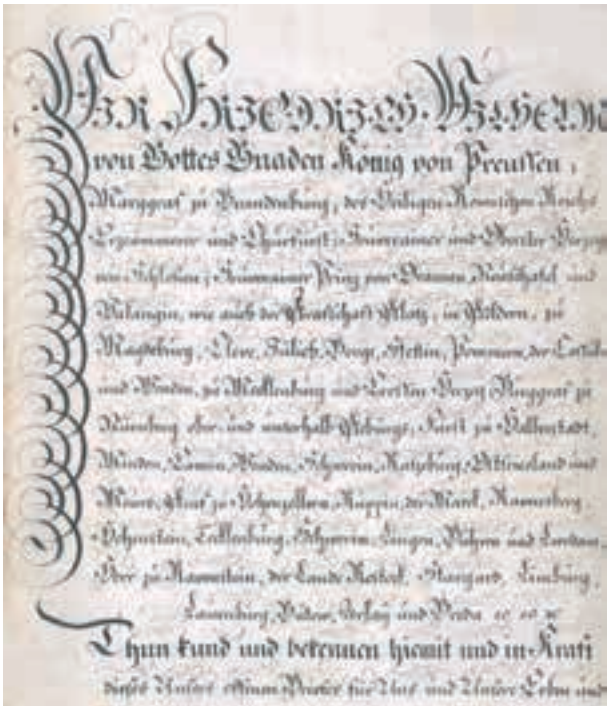 WIR FRIEDRICH WILHELM
von Gottes Gnaden König von Preussen,
Marggraf zu Brandenburg, des Heiligen Römischen Reichs
Ertzcämmerer und Churfürst; Souverainer und Oberster Hertzog
von Schlesien; Souverainer Printz von Oranien, Neufchatel und
Valangin, wie auch der Grafschaft Glatz, in Geldern, zu
Magdeburg, Cleve, Jülich, Berge, Stettin, Pommern, der Cassuben
und Wenden, zu Mecklenburg und Crossen Hertzog Burggraf zu
Nürnberg ober- und unterhalb Gebürgs, Fürst zu Halberstadt,
Minden, Camin, Wenden, Schwerin, Ratzeburg, Ostfriesland und
Meurs, Graf zu Hohenzollern, Ruppin, der Marck, Ravensberg,
Hohenstein, Tecklenburg, Schwerin, Lingen, Bühren und Leerdam,
Herr zu Ravenstein, der Lande Rostock, Stargard, Limburg,
Lauenburg, Bütow, Arlay und Breda
Thun kund und bekennen hiemit und in Kraft
dieses Unsers offenen Brieves für Uns und Unsere Erben und